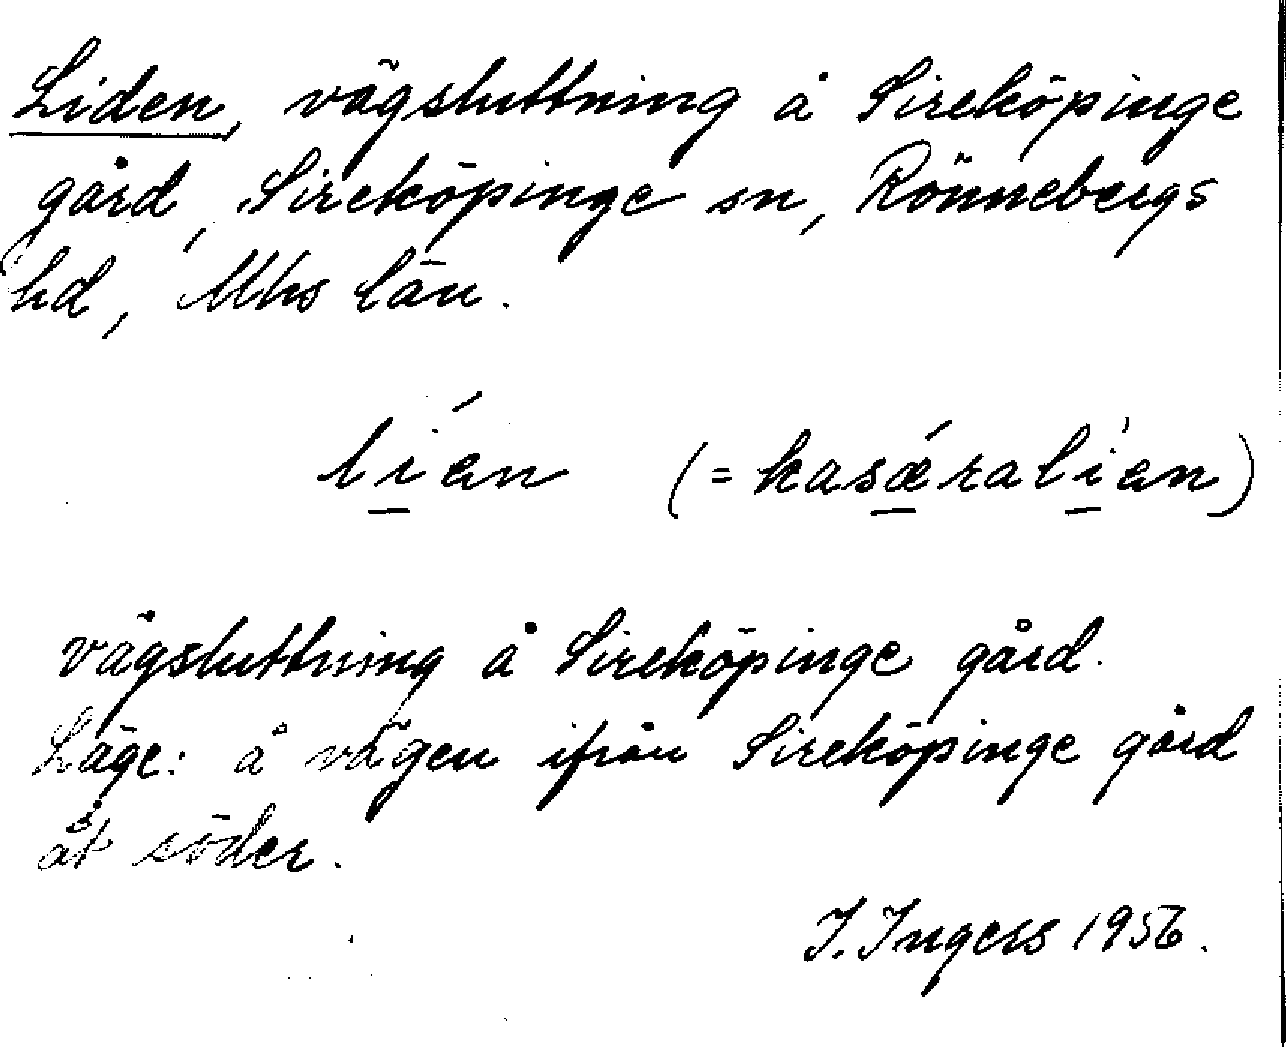 Liden, vägsluttning å Sireköpinge
gård, Sireköpinge sn, Rönnebergs
hd, Mhs län.
líən (= kasǽralíən)
vägsluttning å Sireköpinge gård.
Läge: å vägen ifrån Sireköpinge gård
åt söder.
I. Ingers 1956.